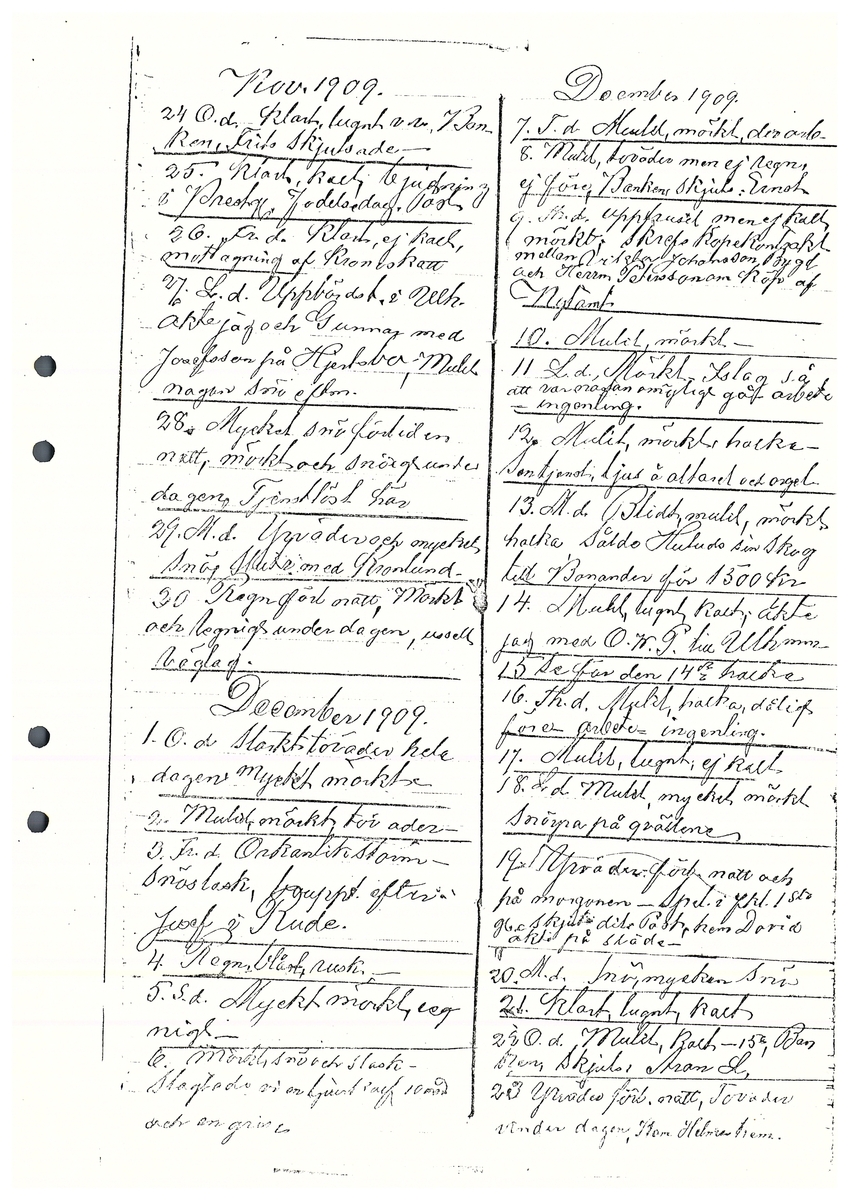 Nov. 1909.
24 O.d. Klart, lugnt v.v. Ban
ken, Frits Skjutsade—
25. Klart, kallt, bjudning
i Presteg. Födelsedag. Post
26. Fr.d. Klart, ej kallt,
mottagning af Kronoskatt
27. L.d. Uppbördst. i Ulh.
åkte jag och Gunnar med
Josefsson på Hjertsbo, Mulet
någon snö eftm.
28. Mycket snö förliden
natt, mörkt och snöigt under
dagen, Tjenstlöst här
29. M.d. Yrväder och mycket
snö, med Kronlund—
30 Regn förl. natt, Mörkt
och regnigt under dagen, uselt
väglag.
December 1909.
1. O.d Starkt töväder hela
dagen Myckt mörkt
2. Mulet, mörkt, töväder—
3. Fr.d. Orkanlik storm—
Snöslask, efter
Josef i Rude.
4. Regn, blåst, rusk.—
5. S.d. Myckt mörkt, reg
nigt—
6. Mörkt, snö och slask—
Slagtade vi en
och en gris
December 1909.
7. T.d Mulet, mörkt,
8. Mulet, töväder men ej regn,
ej före, Banken skjuts: Ernst
9. Th.d. uppfruset men ej kallt,
mörkt; skrefs köpekontrakt
mellan Johansson, Bygd
och Herrm. Petersson om köp af
Nytomt
10. Mulet, mörkt—
11 L.d. Mörkt, Islag så
att var omöjligt gå, arbete
= ingenting.
12. Mulet, mörkt, halka—
tjenst, ljus å altaret och orgel
13. M.d. Blidt, mulet, mörkt,
halka Sålde sin skog
till Bonander för 1500 Kr
14. Mulet, lugnt, kallt; åkte
jag med O.W.P. till Ulh
15 Se för den 14de halka
16. Th.d. Mulet, halka, dåligt
före arbete= ingenting.
17. Mulet, lugnt, ej kallt
18. L.d. Mulet, mycket mörkt
Snörpa på gräflene
19. Yrväder förl. natt och
på morgonen — Spel. i fkl. 1sta
g. skjuts dit: Post, hem David
åkte på släde—
20. M.d. Snö, mycken snö
21. Klart, lugnt, kallt
22 O.d. Mulet, kallt—15°, Ban
ken, skjuts: Aron L.
23 Yrväder förl. natt, Töväder
under dagen, Kom Helmer hem.